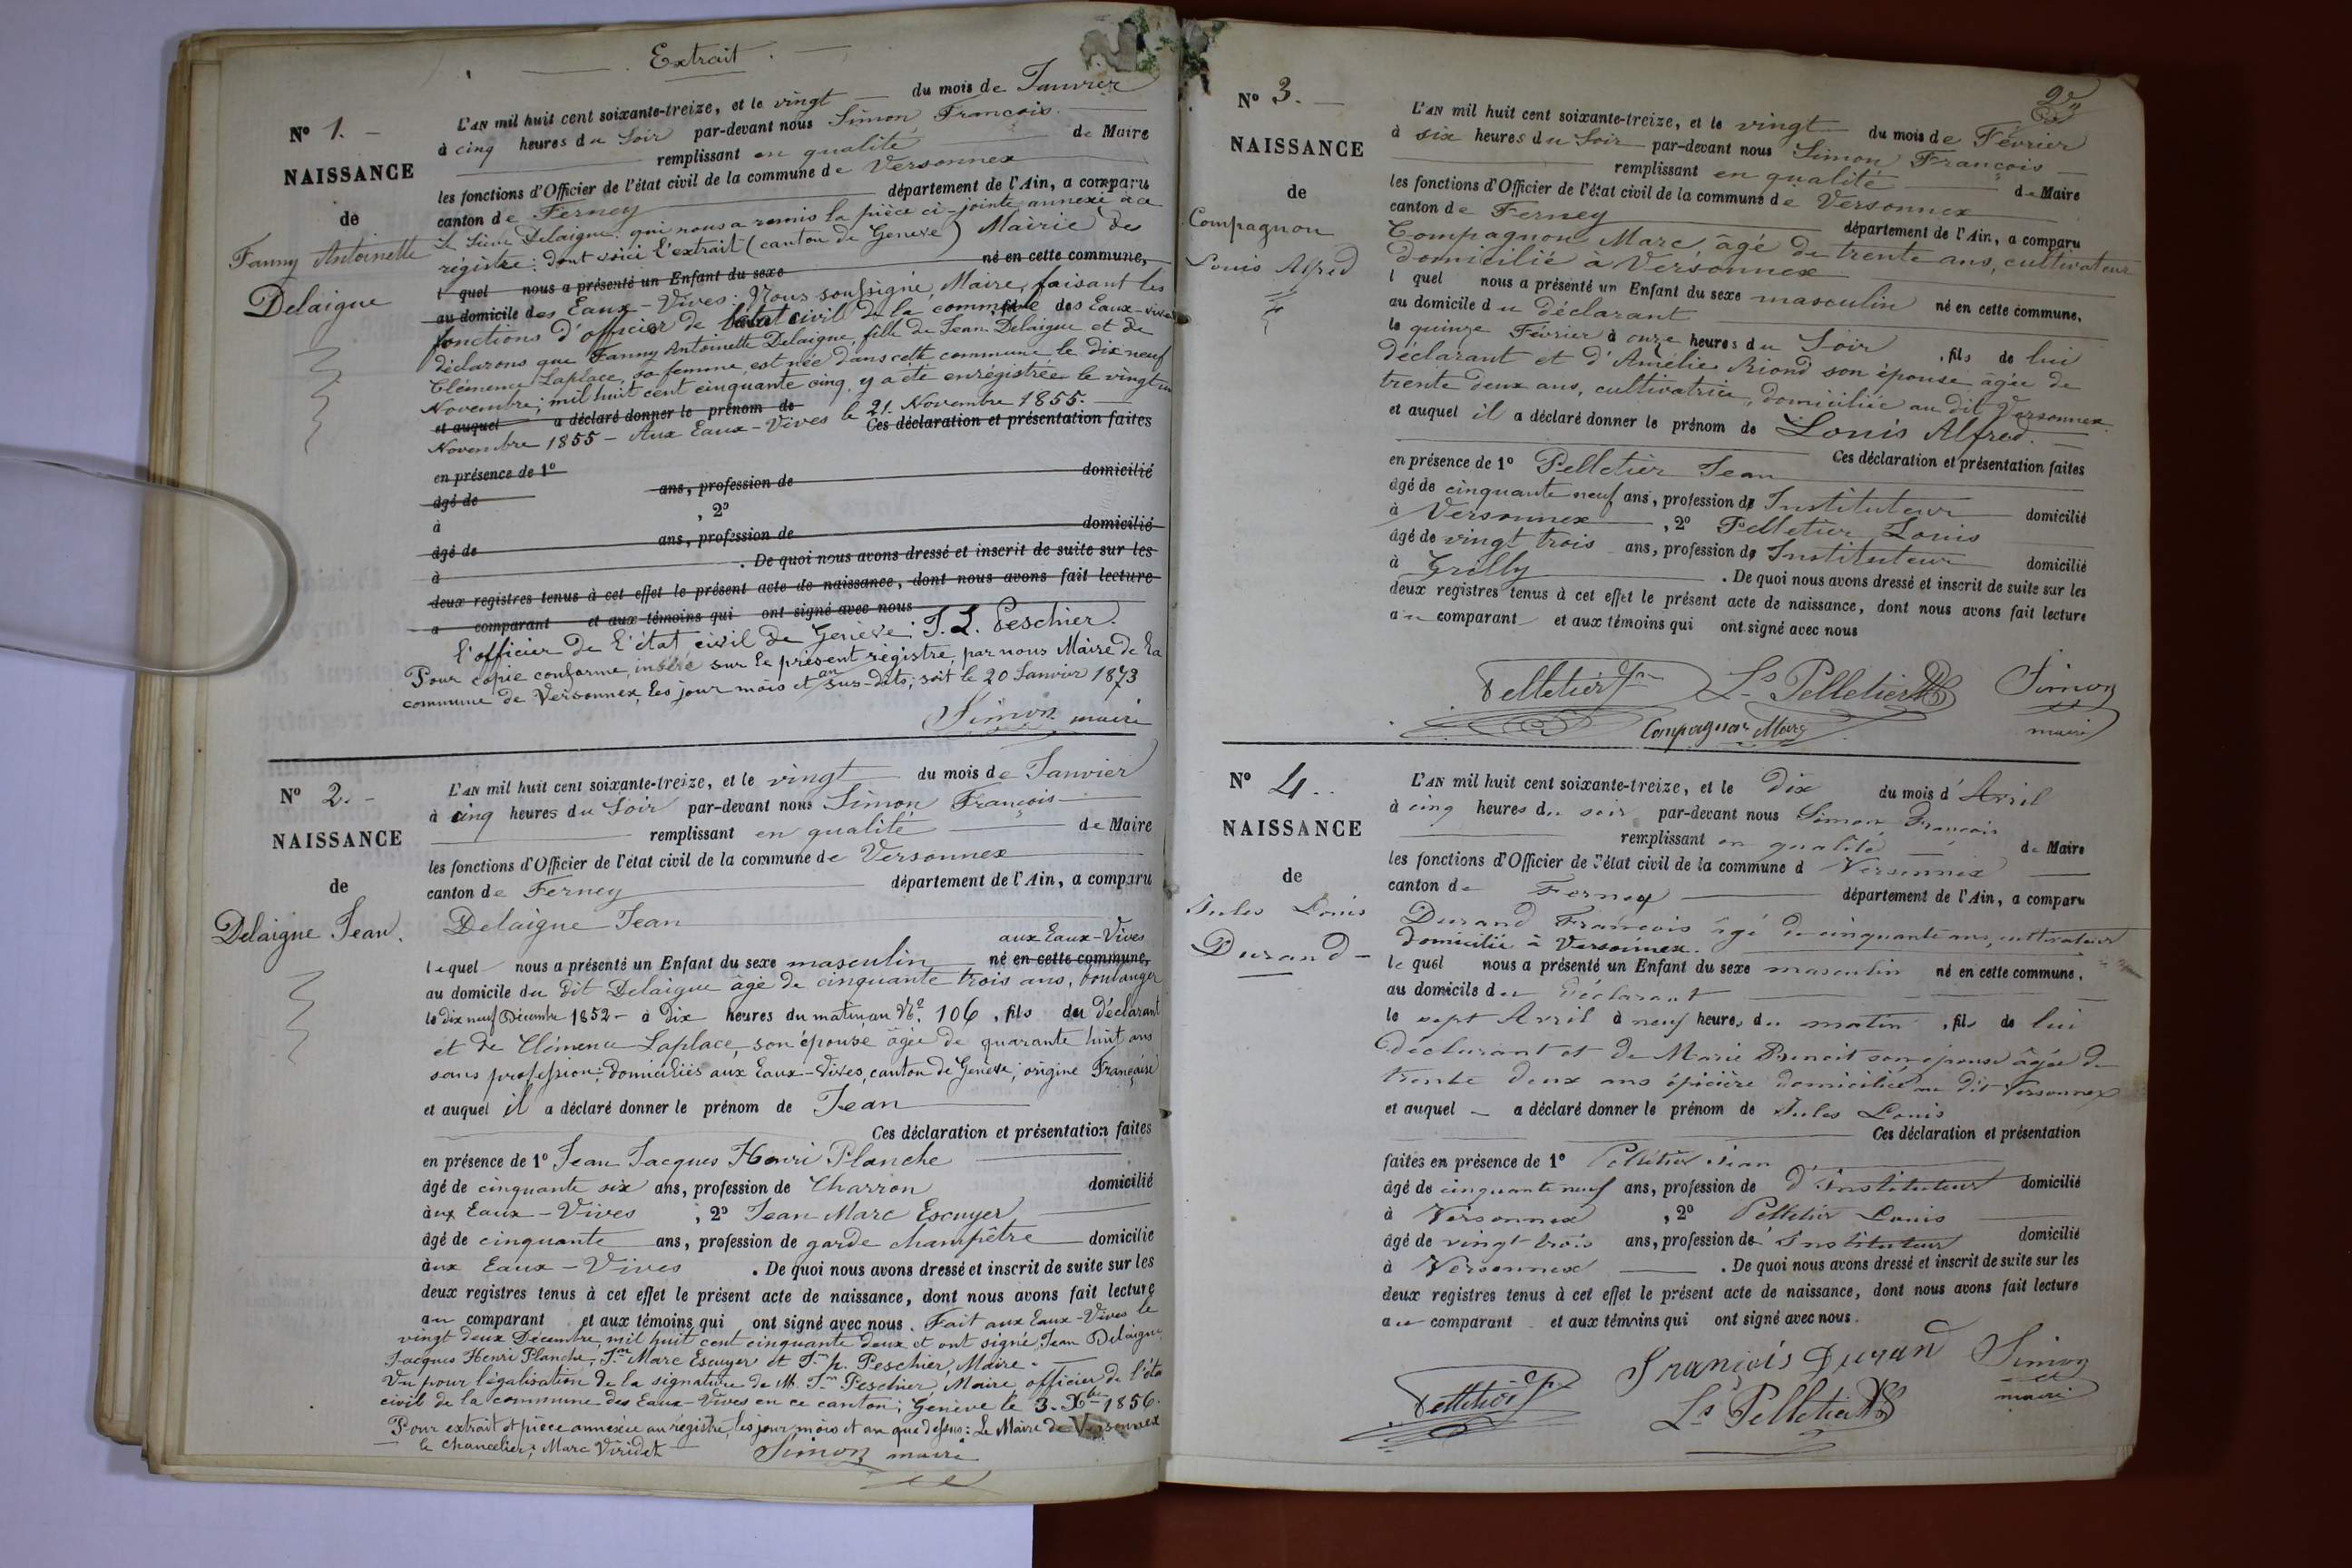 Extrait
N° 1.
NAISSANCE
de
Fanny Antoinette
Delaigue
L'AN mil huit cent soixante-treize, et le vingt du mois de Janvier
à cinq heures du Soir par-devant nous Simon François
remplissant en qualité de Maire
les fonctions d'Officier de l'état civil de la commune de Versonnex
canton de Ferney département de l'Ain, a comparu
Le Sieur Delaigue qui nous a remis la pièce ci-jointe annexée au
régistre: dont voici l'extrait (canton de Genève) Mairie des
l quel nous a présenté un Enfant du sexe né en cette commune,
au domicile des Eaux-Vives: Nous soussigné, Maire, faisant les
fonctions d'officier de l'état civil de la commune des Eaux-vives
déclarons que Fanny Antoinette Delaigue, fille de Jean Delaigue et de
Clémence Laplace, sa femme, est née dans cette commune le dix neuf
Novembre, mil huit cent cinquante cinq, y a été enrégistrée le vingt un
et auquel a déclaré donner le prénom de
Novembre 1855 - Aux Eaux-Vives le 21. Novembre 1855.
Ces déclaration et présentation faites
en présence de 1° domicilié
âgé de ans, profession de
à , 2° domicilié
âgé de ans, profession de
à . De quoi nous avons dressé et inscrit de suite sur les
deux registres tenus à cet effet le présent acte de naissance, dont nous avons fait lecture
a comparant et aux témoins qui ont signé avec nous
l'officier de l'état civil de Genève: J. L. Peschier.
Pour copie conforme, inséré sur le présent régistre, par nous Maire de la
commune de Versonnex, les jour mois et an sus-dits; soit le 20 Janvier 1873
Simon maire
N° 2.
NAISSANCE
de
Delaigue Jean.
L'AN mil huit cent soixante-treize, et le vingt du mois de Janvier
à cinq heures du Soir par-devant nous Simon François
remplissant en qualité de Maire
les fonctions d'Officier de l'état civil de la commune de Versonnex
canton de Ferney département de l'Ain, a comparu
Delaigue Jean
aux Eaux-Vives
lequel nous a présenté un Enfant du sexe masculin né en cette commune,
au domicile du dit Delaigue âgé de cinquante trois ans, boulanger
le dix neuf Décembre 1852 - à dix heures du matin, au N°. 106, fils du déclarant
et de Clémence Laplace, son épouse âgée de quarante huit ans
sans profession; domiciliés aux Eaux-Vives, canton de Genève; origine Française
et auquel il a déclaré donner le prénom de Jean
Ces déclaration et présentation faites
en présence de 1° Jean Jacques Henri Planche
âgé de cinquante six ans, profession de Charron domicilié
aux Eaux-Vives , 2° Jean Marc Escuyer
âgé de cinquante ans, profession de garde champêtre domicilié
aux Eaux-Vives . De quoi nous avons dressé et inscrit de suite sur les
deux registres tenus à cet effet le présent acte de naissance, dont nous avons fait lecture
au comparant et aux témoins qui ont signé avec nous. Fait aux Eaux-Vives le
vingt deux Décembre, mil huit cent cinquante deux et ont signé, Jean Delaigue
Jacques Henri Planche, Jn Marc Escuyer et Jn p. Peschier, Maire.
Vu pour légalisation de la signature de M. Jn Peschier, Maire, officier de l'état
civil de la commune des Eaux-Vives en ce canton; Genève le 3. Xbre 1856.
Pour extrait et pièce annexée au régistre, les jour mois et an que dessus: Le Maire de Versonnex
le chancelier, Marc Viridet
Simon maire
2
N° 3.
NAISSANCE
de
Compagnon
Louis Alfred
L'AN mil huit cent soixante-treize, et le vingt du mois de Février
à six heures du Soir par-devant nous Simon François
remplissant en qualité de Maire
les fonctions d'Officier de l'état civil de la commune de Versonnex
canton de Ferney département de l'Ain, a comparu
Compagnon Marc, âgé de trente ans, cultivateur
domicilié à Versonnex
l quel nous a présenté un Enfant du sexe masculin né en cette commune,
au domicile du déclarant
le quinze Février à onze heures du Soir , fils de lui
déclarant et d'Amélie Riond son épouse âgée de
trente deux ans, cultivatrice, domiciliée au dit Versonnex
et auquel il a déclaré donner le prénom de Louis Alfred.
Ces déclaration et présentation faites
en présence de 1° Pelletier Jean
âgé de cinquante neuf ans, profession de Instituteur domicilié
à Versonnex , 2° Pelletier Louis
âgé de vingt trois ans, profession de Instituteur domicilié
à Grilly . De quoi nous avons dressé et inscrit de suite sur les
deux registres tenus à cet effet le présent acte de naissance, dont nous avons fait lecture
au comparant et aux témoins qui ont signé avec nous
Pelletier Jn Ls Pelletier Simon
Compagnon Marc maire
N° 4.
NAISSANCE
de
Jules Louis
Durand
L'AN mil huit cent soixante-treize, et le dix du mois d'Avril
à cinq heures du soir par-devant nous Simon François
remplissant en qualité de Maire
les fonctions d'Officier de l'état civil de la commune d Versonnex
canton de Ferney département de l'Ain, a comparu
Durand François âgé de cinquante ans, cultivateur
domicilié à Versonnex.
lequel nous a présenté un Enfant du sexe masculin né en cette commune,
au domicile du déclarant
le sept Avril à neuf heures du matin , fils de lui
déclarant et de Marie Benoit son épouse âgée de
trente deux ans épicière domiciliée au dit Versonnex
et auquel a déclaré donner le prénom de Jules Louis
Ces déclaration et présentation
faites en présence de 1° Pelletier Jean
âgé de cinquante neuf ans, profession de d'Instituteur domicilié
à Versonnex , 2° Pelletier Louis
âgé de vingt trois ans, profession de Instituteur domicilié
à Versonnex . De quoi nous avons dressé et inscrit de suite sur les
deux registres tenus à cet effet le présent acte de naissance, dont nous avons fait lecture
au comparant et aux témoins qui ont signé avec nous.
François Durand Simon
Pelletier Jn Ls Pelletier maire